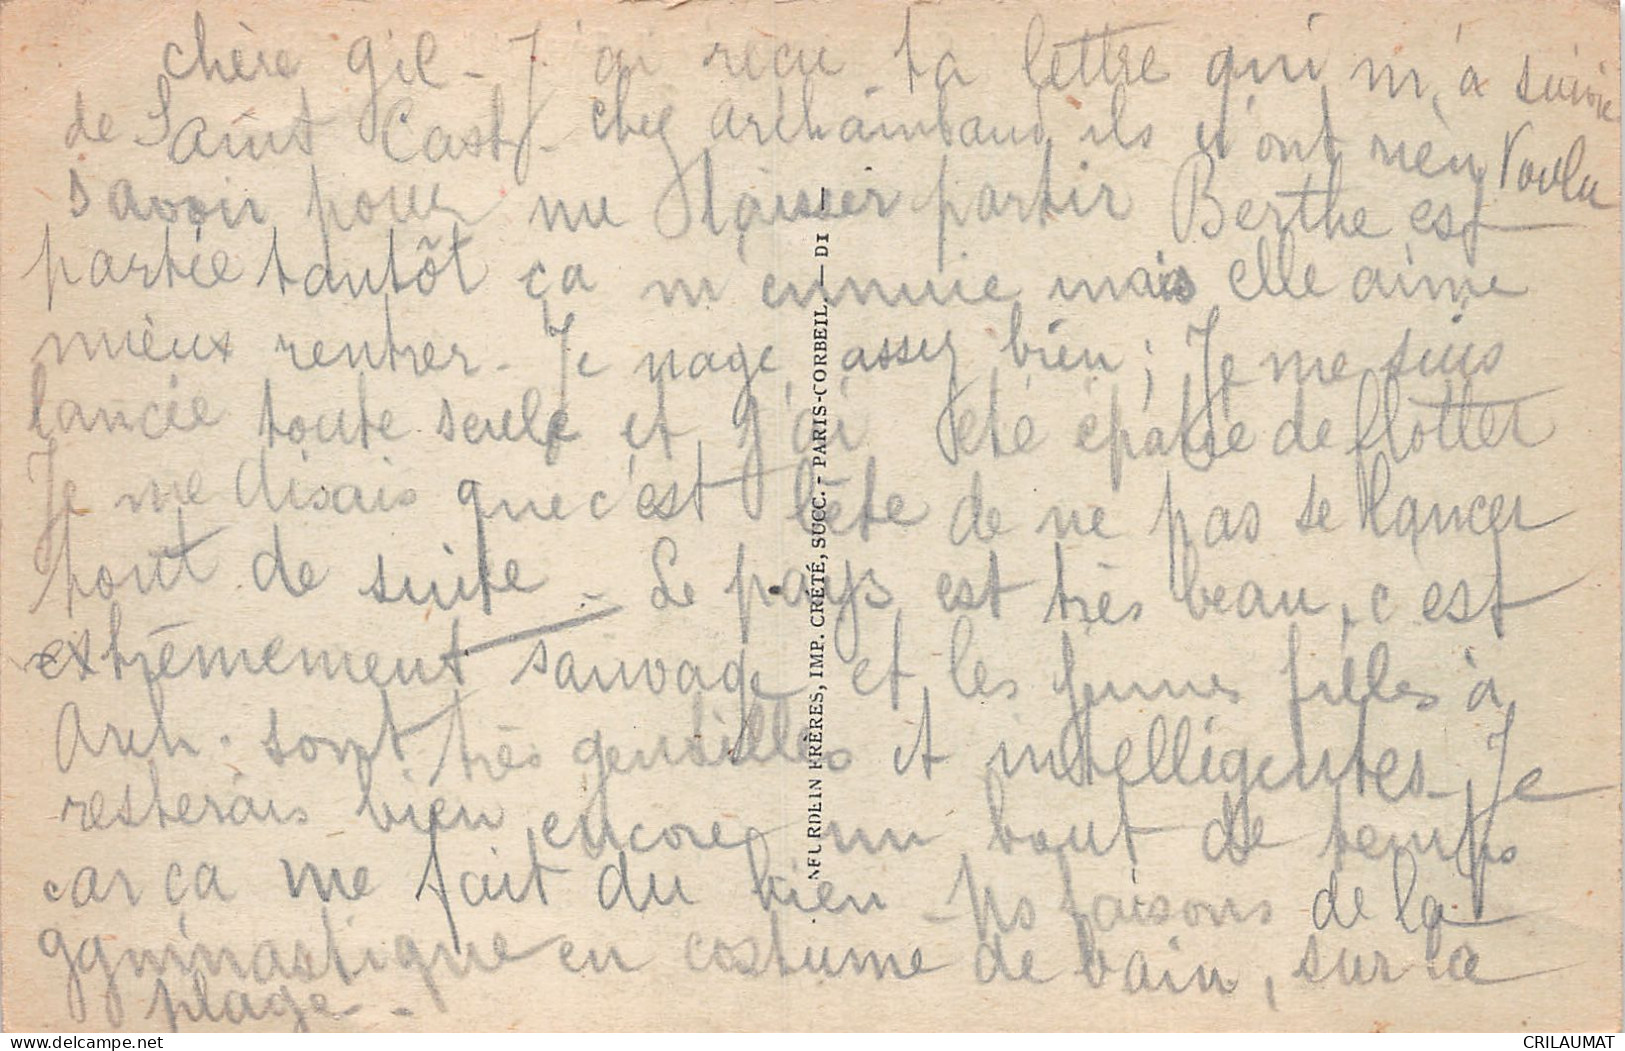 chère Gil - J'ai reçu ta lettre qui m'a suivie
de Saint Cast - chez Archambaud ils n'ont rien voulu
savoir pour me laisser partir Berthe est
partie tantôt ça m'ennuie mais elle aime
mieux rentrer - Je nage assez bien ; Je me suis
lancée toute seule et j'ai été épatée de flotter
Je me disais que c'est bête de ne pas se lancer
tout de suite - Le pays est très beau, c'est
extrêmement sauvage et les jeunes filles à
Arch. sont très gentilles et intelligentes - Je
resterais bien encore un bout de temps
car ça me fait du bien - Ns faisons de la
gymnastique en costume de bain, sur la
plage - .
NEURDEIN FRÈRES, IMP. CRÉTÉ, SUCC. - PARIS-CORBEIL. — DI —
delcampe.net
CRILAUMAT